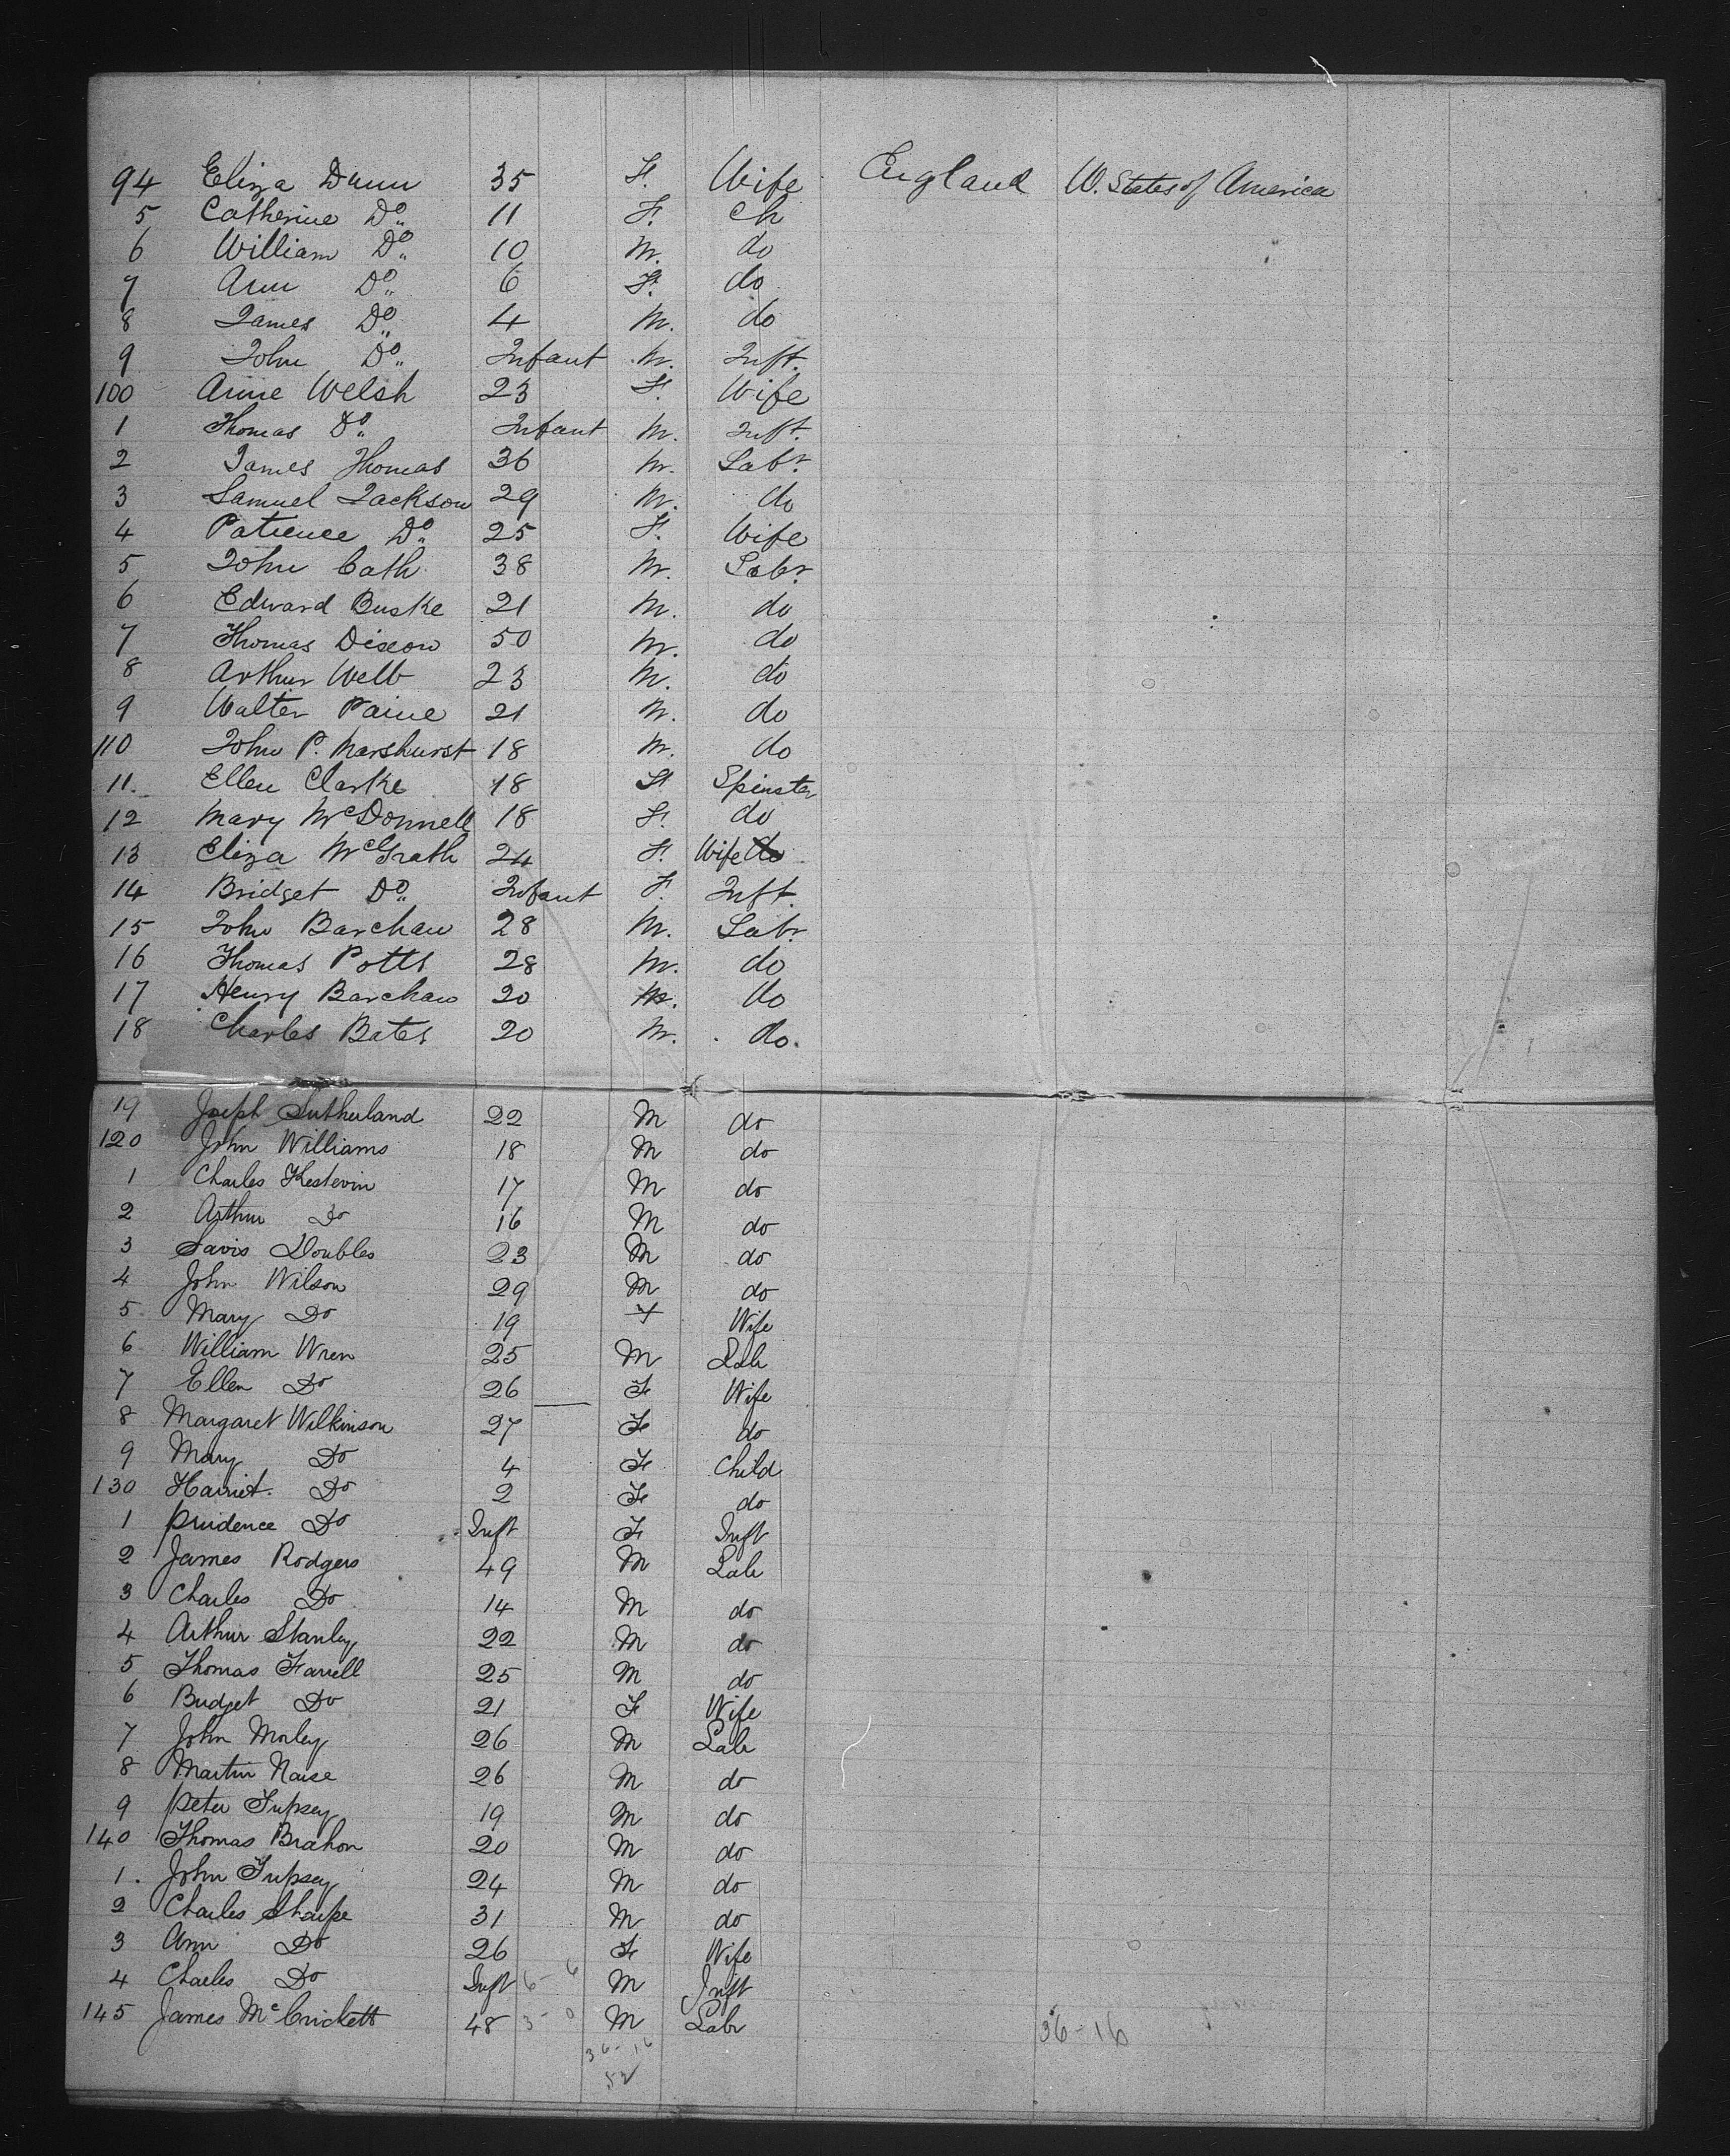 94 Eliza Dunn 35 F. Wife England U. States of America
5 Catherine Do 11 F. Ch
6 William Do 10 M. do
7 Ann Do 6 F. do
8 James Do 4 M. do
9 John Do Infant M. Inft.
100 Anne Welsh 23 F. Wife
1 Thomas Do Infant M. Inft.
2 James Thomas 36 M. Labr.
3 Samuel Jackson 29 M. do
4 Patience Do 25 F. Wife
5 John Cath 38 M. Labr.
6 Edward Buske 21 M. do
7 Thomas Dixon 50 M. do
8 Arthur Webb 23 M. do
9 Walter Paine 21 M. do
110 John P. Marshurst 18 M. do
11. Ellen Clarke 18 F Spinster
12 Mary McDonnell 18 F. do
13 Eliza McGrath 24 F. Wife do
14 Bridget Do Infant F. Inft.
15 John Barchaw 28 M. Labr
16 Thomas Potts 28 M. do
17 Henry Barchaw 20 M. do
18 Charles Bates 20 M. do.
19 Joseph Sutherland 22 M do
120 John Williams 18 M do
1 Charles Kestevin 17 M do
2 Arthur Do 16 M do
3 Savis Doubles 23 M do
4 John Wilson 29 M do
5 Mary Do 19 F Wife
6 William Wren 25 M Lab
7 Ellen Do 26 F Wife
8 Margaret Wilkinson 27 F do
9 Mary Do 4 F Child
130 Harriet Do 2 F do
1 Prudence Do Inft F Inft
2 James Rodgers 49 M Lab
3 Charles Do 14 M do
4 Arthur Stanley 22 M do
5 Thomas Farrell 25 M do
6 Bridget Do 21 F Wife
7 John Morley 26 M Lab
8 Martin Naise 26 M do
9 Peter Tupsey 19 M do
140 Thomas Brahon 20 M do
1. John Tupsey 24 M do
2 Charles Sharpe 31 M do
3 Ann Do 26 F Wife
4 Charles Do Inft 6 - 6 M Inft
145 James McCrickett 48 3 - 0 M Labr 36-16
36-16
52